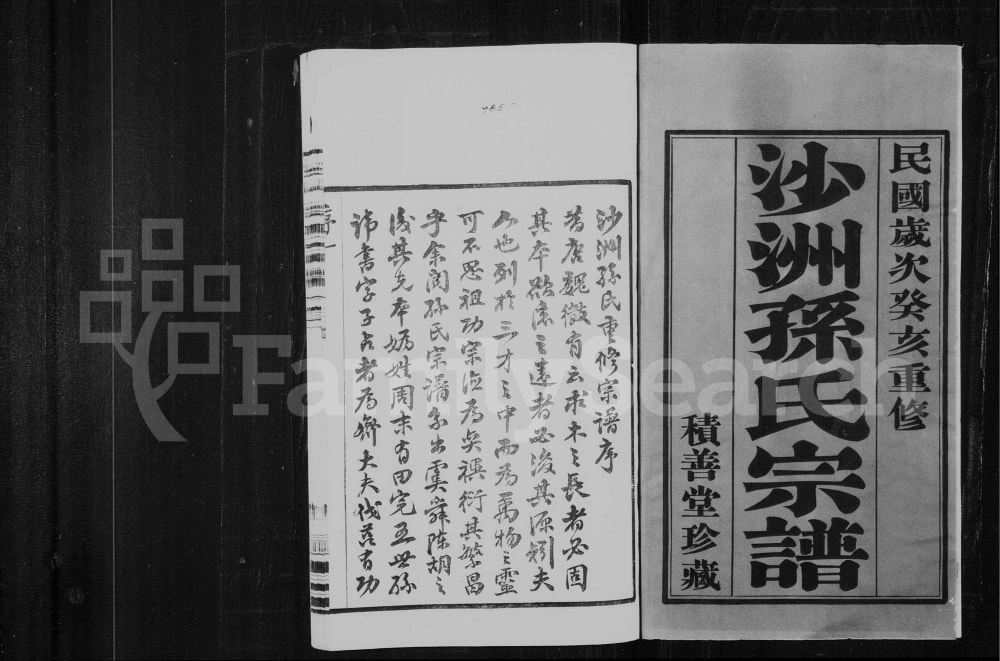 民國歲次癸亥重修
沙洲孫氏宗譜
積善堂珍藏
沙洲孫氏重修宗譜序
昔唐魏徵有云求木之長者必固
其本欲流之遠者必浚其源矧夫
人也列於三才之中而為萬物之靈
可不思祖功宗德為奕禩衍其繁昌
乎余閱孫氏宗譜系出虞舜陳胡之
後其先本媯姓周末有田完五世孫
諱書字子占者為齊大夫伐莒有功
序
FamilySearch